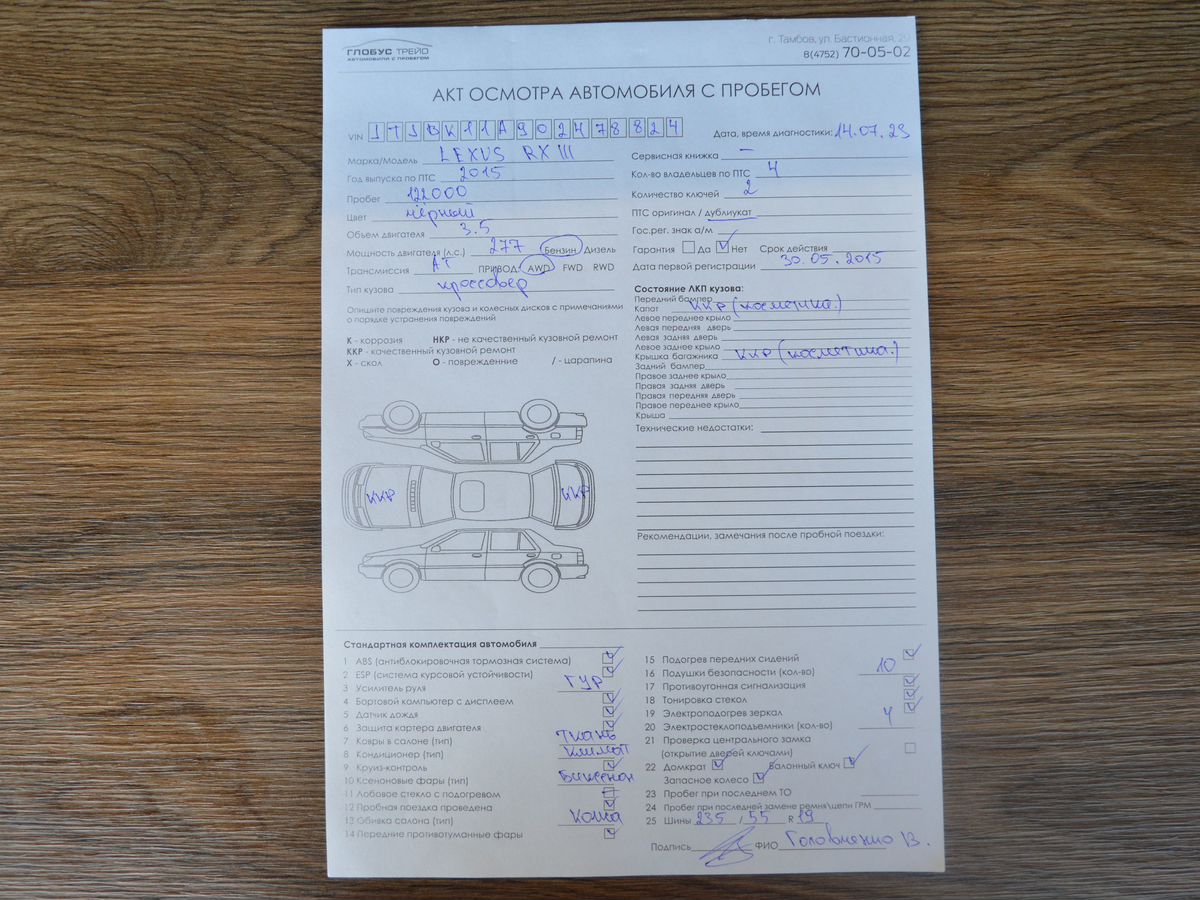 ГЛОБУС ТРЕЙД
АВТОМОБИЛИ С ПРОБЕГОМ
г. Тамбов, ул. Бастионная, 29
8(4752) 70-05-02
АКТ ОСМОТРА АВТОМОБИЛЯ С ПРОБЕГОМ
VIN JTJBK11A902478824
Дата, время диагностики: 14.07.23
Марка/Модель LEXUS RX III
Год выпуска по ПТС 2015
Пробег 122000
Цвет чёрный
Объем двигателя 3.5
Мощность двигателя (л.с.) 277 Бензин Дизель
Трансмиссия АТ ПРИВОД: AWD FWD RWD
Тип кузова кроссовер
Сервисная книжка –
Кол-во владельцев по ПТС 4
Количество ключей 2
ПТС оригинал / дубликат
Гос.рег. знак а/м
Гарантия Да Нет Срок действия
Дата первой регистрации 30.05.2015
Опишите повреждения кузова и колесных дисков с примечаниями
о порядке устранения повреждений
К - коррозия НКР - не качественный кузовной ремонт
ККР - качественный кузовной ремонт
Х - скол О - повреждение / - царапина
Состояние ЛКП кузова:
Передний бампер
Капот ККР (косметика.)
Левое переднее крыло
Левая передняя дверь
Левая задняя дверь
Левое заднее крыло
Крышка багажника ККР (косметика.)
Задний бампер
Правое заднее крыло
Правая задняя дверь
Правая передняя дверь
Правое переднее крыло
Крыша
Технические недостатки:
ККР ККР
Рекомендации, замечания после пробной поездки:
Стандартная комплектация автомобиля
1 ABS (антиблокировочная тормозная система)
2 ESP (система курсовой устойчивости)
3 Усилитель руля ГУР
4 Бортовой компьютер с дисплеем
5 Датчик дождя
6 Защита картера двигателя
7 Ковры в салоне (тип) Ткань
8 Кондиционер (тип) Климат
9 Круиз-контроль
10 Ксеноновые фары (тип) Биксенон
11 Лобовое стекло с подогревом
12 Пробная поездка проведена
13 Обивка салона (тип) Кожа
14 Передние противотуманные фары
15 Подогрев передних сидений
16 Подушки безопасности (кол-во) 10
17 Противоугонная сигнализация
18 Тонировка стекол
19 Электроподогрев зеркал
20 Электростеклоподъемники (кол-во) 4
21 Проверка центрального замка
(открытие дверей ключами)
22 Домкрат Балонный ключ
Запасное колесо
23 Пробег при последнем ТО
24 Пробег при последней замене ремня\цепи ГРМ
25 Шины 235 / 55 R 19
Подпись ФИО Головненко В.